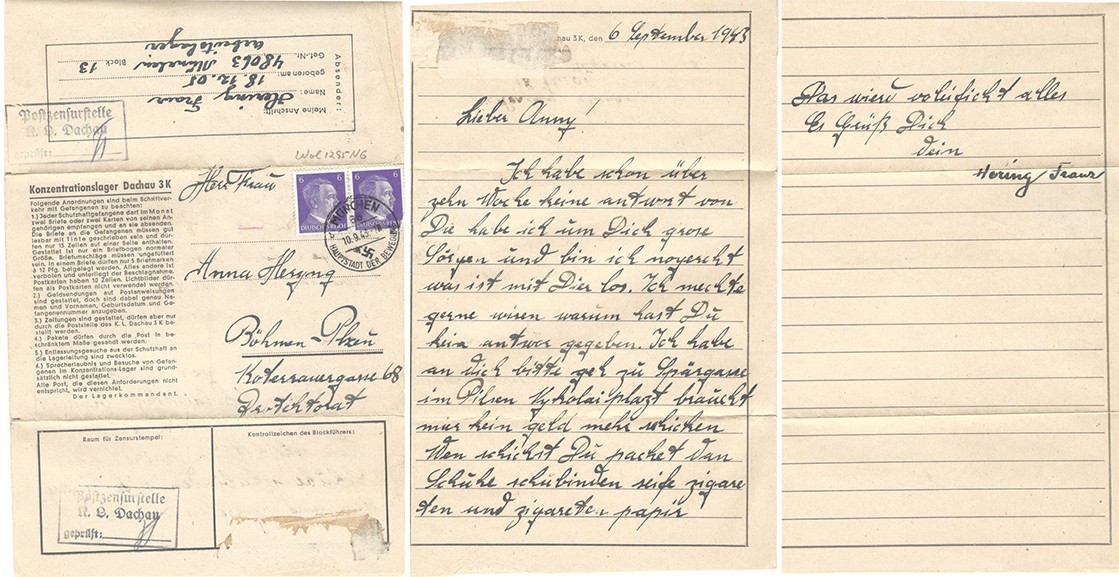 Absender:
Meine Anschrift:
Name: Hering Franz
geboren am: 18.12.05
Gef.-Nr. 48063 München Block 13
Arbeitslager
Postzensurstelle
K. L. Dachau
geprüft:
Wol 1295 NG
Konzentrationslager Dachau 3 K
Folgende Anordnungen sind beim Schriftver-
kehr mit Gefangenen zu beachten:
1.) Jeder Schutzhaftgefangene darf im Monat
zwei Briefe oder zwei Karten von seinen An-
gehörigen empfangen und an sie absenden.
Die Briefe an die Gefangenen müssen gut
lesbar mit Tinte geschrieben sein und dür-
fen nur 15 Zeilen auf einer Seite enthalten.
Gestattet ist nur ein Briefbogen normaler
Größe. Briefumschläge müssen ungefüttert
sein. In einem Briefe dürfen nur 5 Briefmarken
à 12 Pfg. beigelegt werden. Alles andere ist
verboten und unterliegt der Beschlagnahme.
Postkarten haben 10 Zeilen. Lichtbilder dür-
fen als Postkarten nicht verwendet werden.
2.) Geldsendungen auf Postanweisungen
sind gestattet, doch sind dabei genau Na-
men und Vornamen, Geburtsdatum und Ge-
fangenennummer anzugeben.
3.) Zeitungen sind gestattet, dürfen aber nur
durch die Poststelle des K. L. Dachau 3 K be-
stellt werden.
4.) Pakete dürfen durch die Post in be-
schränktem Maße gesandt werden.
5.) Entlassungsgesuche aus der Schutzhaft an
die Lagerleitung sind zwecklos.
6.) Sprecherlaubnis und Besuche von Gefan-
genen im Konzentrations-Lager sind grund-
sätzlich nicht gestattet.
Alle Post, die diesen Anforderungen nicht
entspricht, wird vernichtet.
Der Lagerkommandant.
Herr Frau
6 6
DEUTSCHES REICH DEUTSCHES REICH
MÜNCHEN
10.9.43
HAUPTSTADT DER BEWEGUNG
Anna
Böhmen-Plzeň
68
Raum für Zensurstempel:
Kontrollzeichen des Blockführers:
Postzensurstelle
K. L. Dachau
geprüft:
au 3 K, den 6 September 1943
Lieber Anny!
Ich habe schon über
zehn Woche keine antwort von
Die habe ich um Dich grose
Sorgen und bin ich
was ist mit Dier los. Ich mechte
gerne wisen warum hast Du
kein antwor gegeben. Ich habe
an dich bitte geh zu Spärgasse
im Pilsen plazt braucht
mir kein geld mehr schicken
Wen schickst Du packet dan
Schuhe schubinden seife zigare
ten und zigareten papir
Das wiere alles
Es Grüß Dich
Dein
Hering Franz